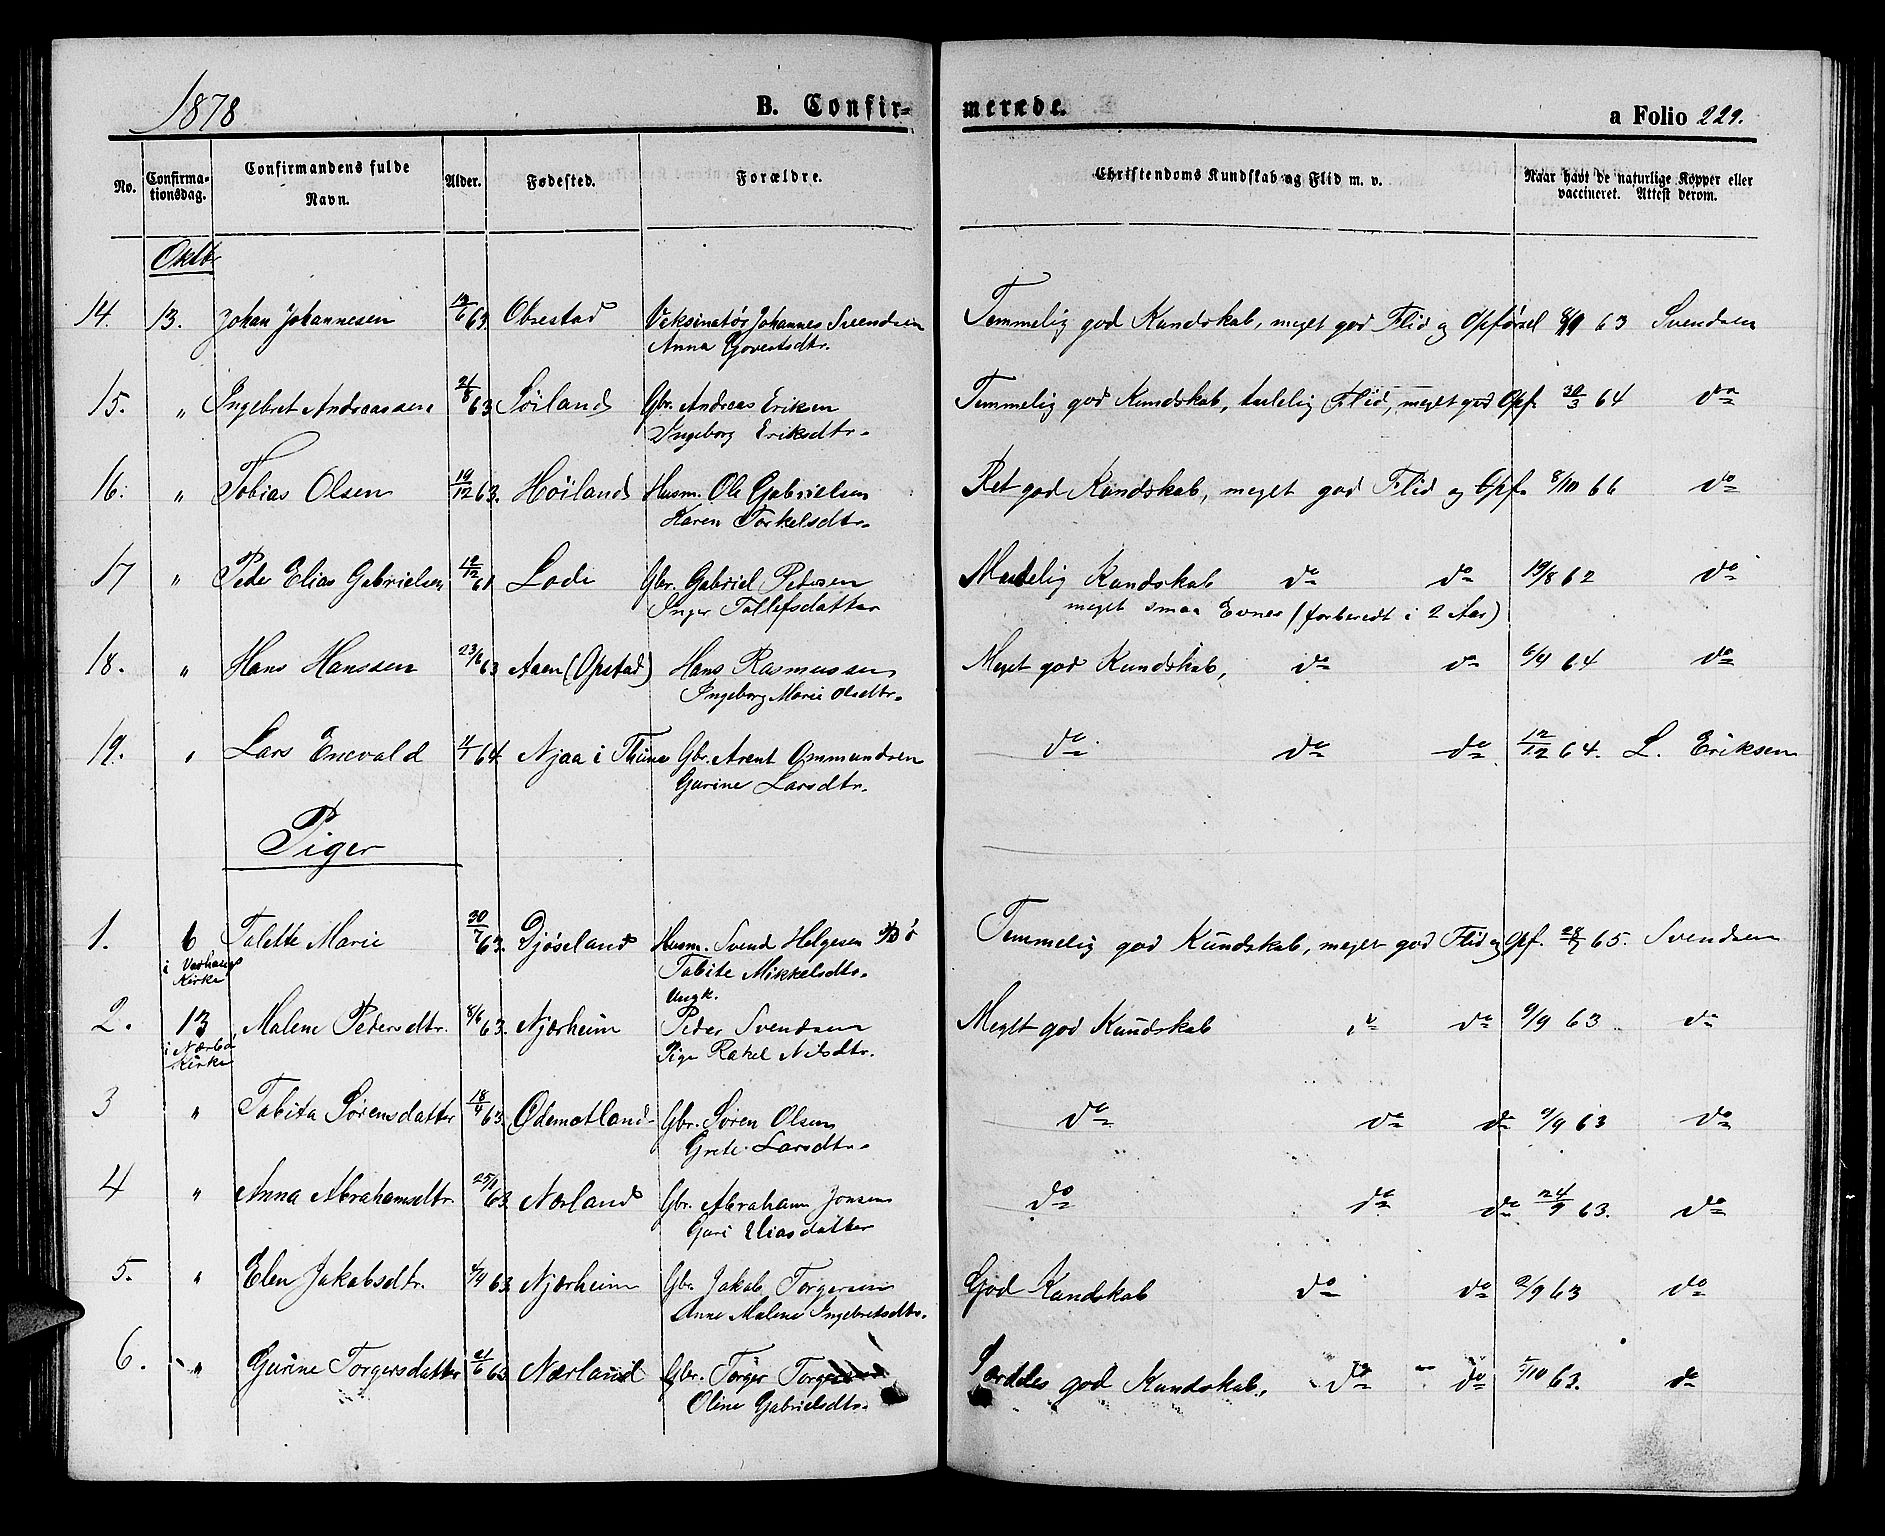 1878 B. Confir- merede. a Folio 229.
No. Confirma-tionsdag. Confirmandens fulde Navn. Alder. Fødested. Forældre. Christendoms Kundskab og Flid m. v. Naar havt de naturlige Kopper eller vaccineret. Attest derom.
Oktbr
14. 13. Johan Johannesen 63 Obrestad Veksinatør Johannes Sveendsen Temmelig god Kundskab, meget god Flid og Opførsel 8/9 63 Svendsen
Anna Govertsdtr.
15. " Ingebret Andreassen 21/8 63 Søiland Gbr. Andreas Eriksen Temmelig god Kundskab, taalelig Flid, meget god Opf. 30/3 64 do
Ingeborg Eriksdtr.
16. " Tobias Olsen 19/12 63. Høiland Husm. Ole Gabrielsen Ret god Kundskab, meget god Flid og Opf. 8/10 66 do
Karen Torkelsdtr.
17 " Peder Elias Gabrielsen 61 Lode Gbr. Gabriel Pedersen Maadelig Kundskab do do 19/8 62 do
Inger Tollefsdatter meget smaa Evner (forberedt i 2 Aar)
18. " Hans Hanssen 23/6 63 Aaen (Opstad) Hans Rasmussen Meget god Kundskab, do do 6/4 64 do
Ingeborg Marie Olsdtr.
19. " Lars Enevald 64. Njaa i Thime Gbr. Arent Ommundsen do do do 12/12 64. L. Eriksen
Gurine Larsdtr.
Piger
1. 6 Talette Marie 30/7 63. Djøseland Husm. Svend Helgesen Temmelig god Kundskab, meget god Flid og Opf. 65. Svendsen
i Varhaug Kirke Tabite Mikkelsdtr.
Ungk.
2. 13 Malene Pedersdtr. 8/6 63. Njærheim Peder Svendsen Meget god Kundskab do do 9/9 63 do
i Nærbø Kirke Pige Rakel Nilsdtr.
3 " Tabita Sørensdatter 18/4 63. Ødemotland Gbr. Søren Olsen do do do 9/9 63 do
Grete Larsdtr.
4 " Anna Abrahamsdtr. 25/1 63. Nærland Gbr. Abraham Jonsen do do do 24/9 63. do
Guri Eliasdatter
5. " Elen Jakobsdtr. 63. Njærheim Gbr. Jakob Torgersen God Kundskab do do 9/9 63 do
Anne Malene Ingebretsdtr.
6. " Gurine Torgersdatter 21/6 63 Nærland Gbr. Torger Særdeles god Kundskab, do do 5/10 63. do
Oline Gabrielsdtr.